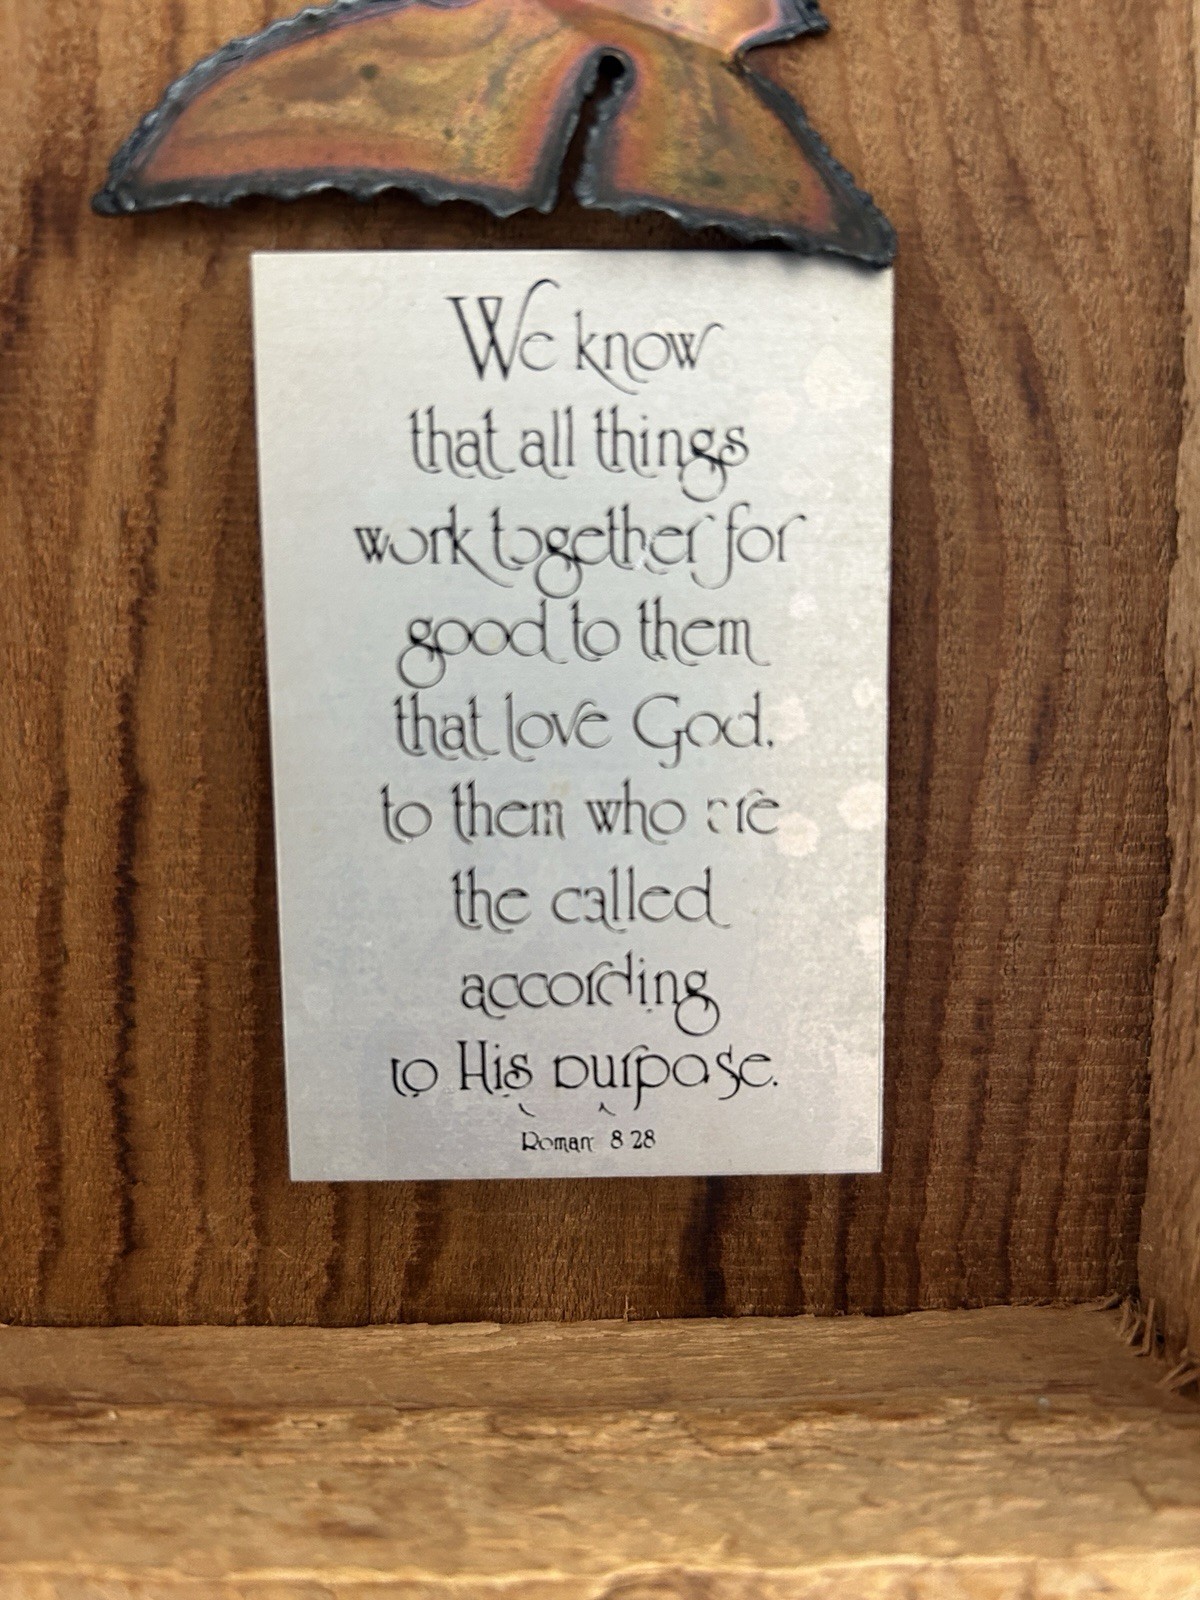 We know
that all things
work together for
good to them
that love God,
to them who are
the called
according
to His purpose.
Romans 8 28